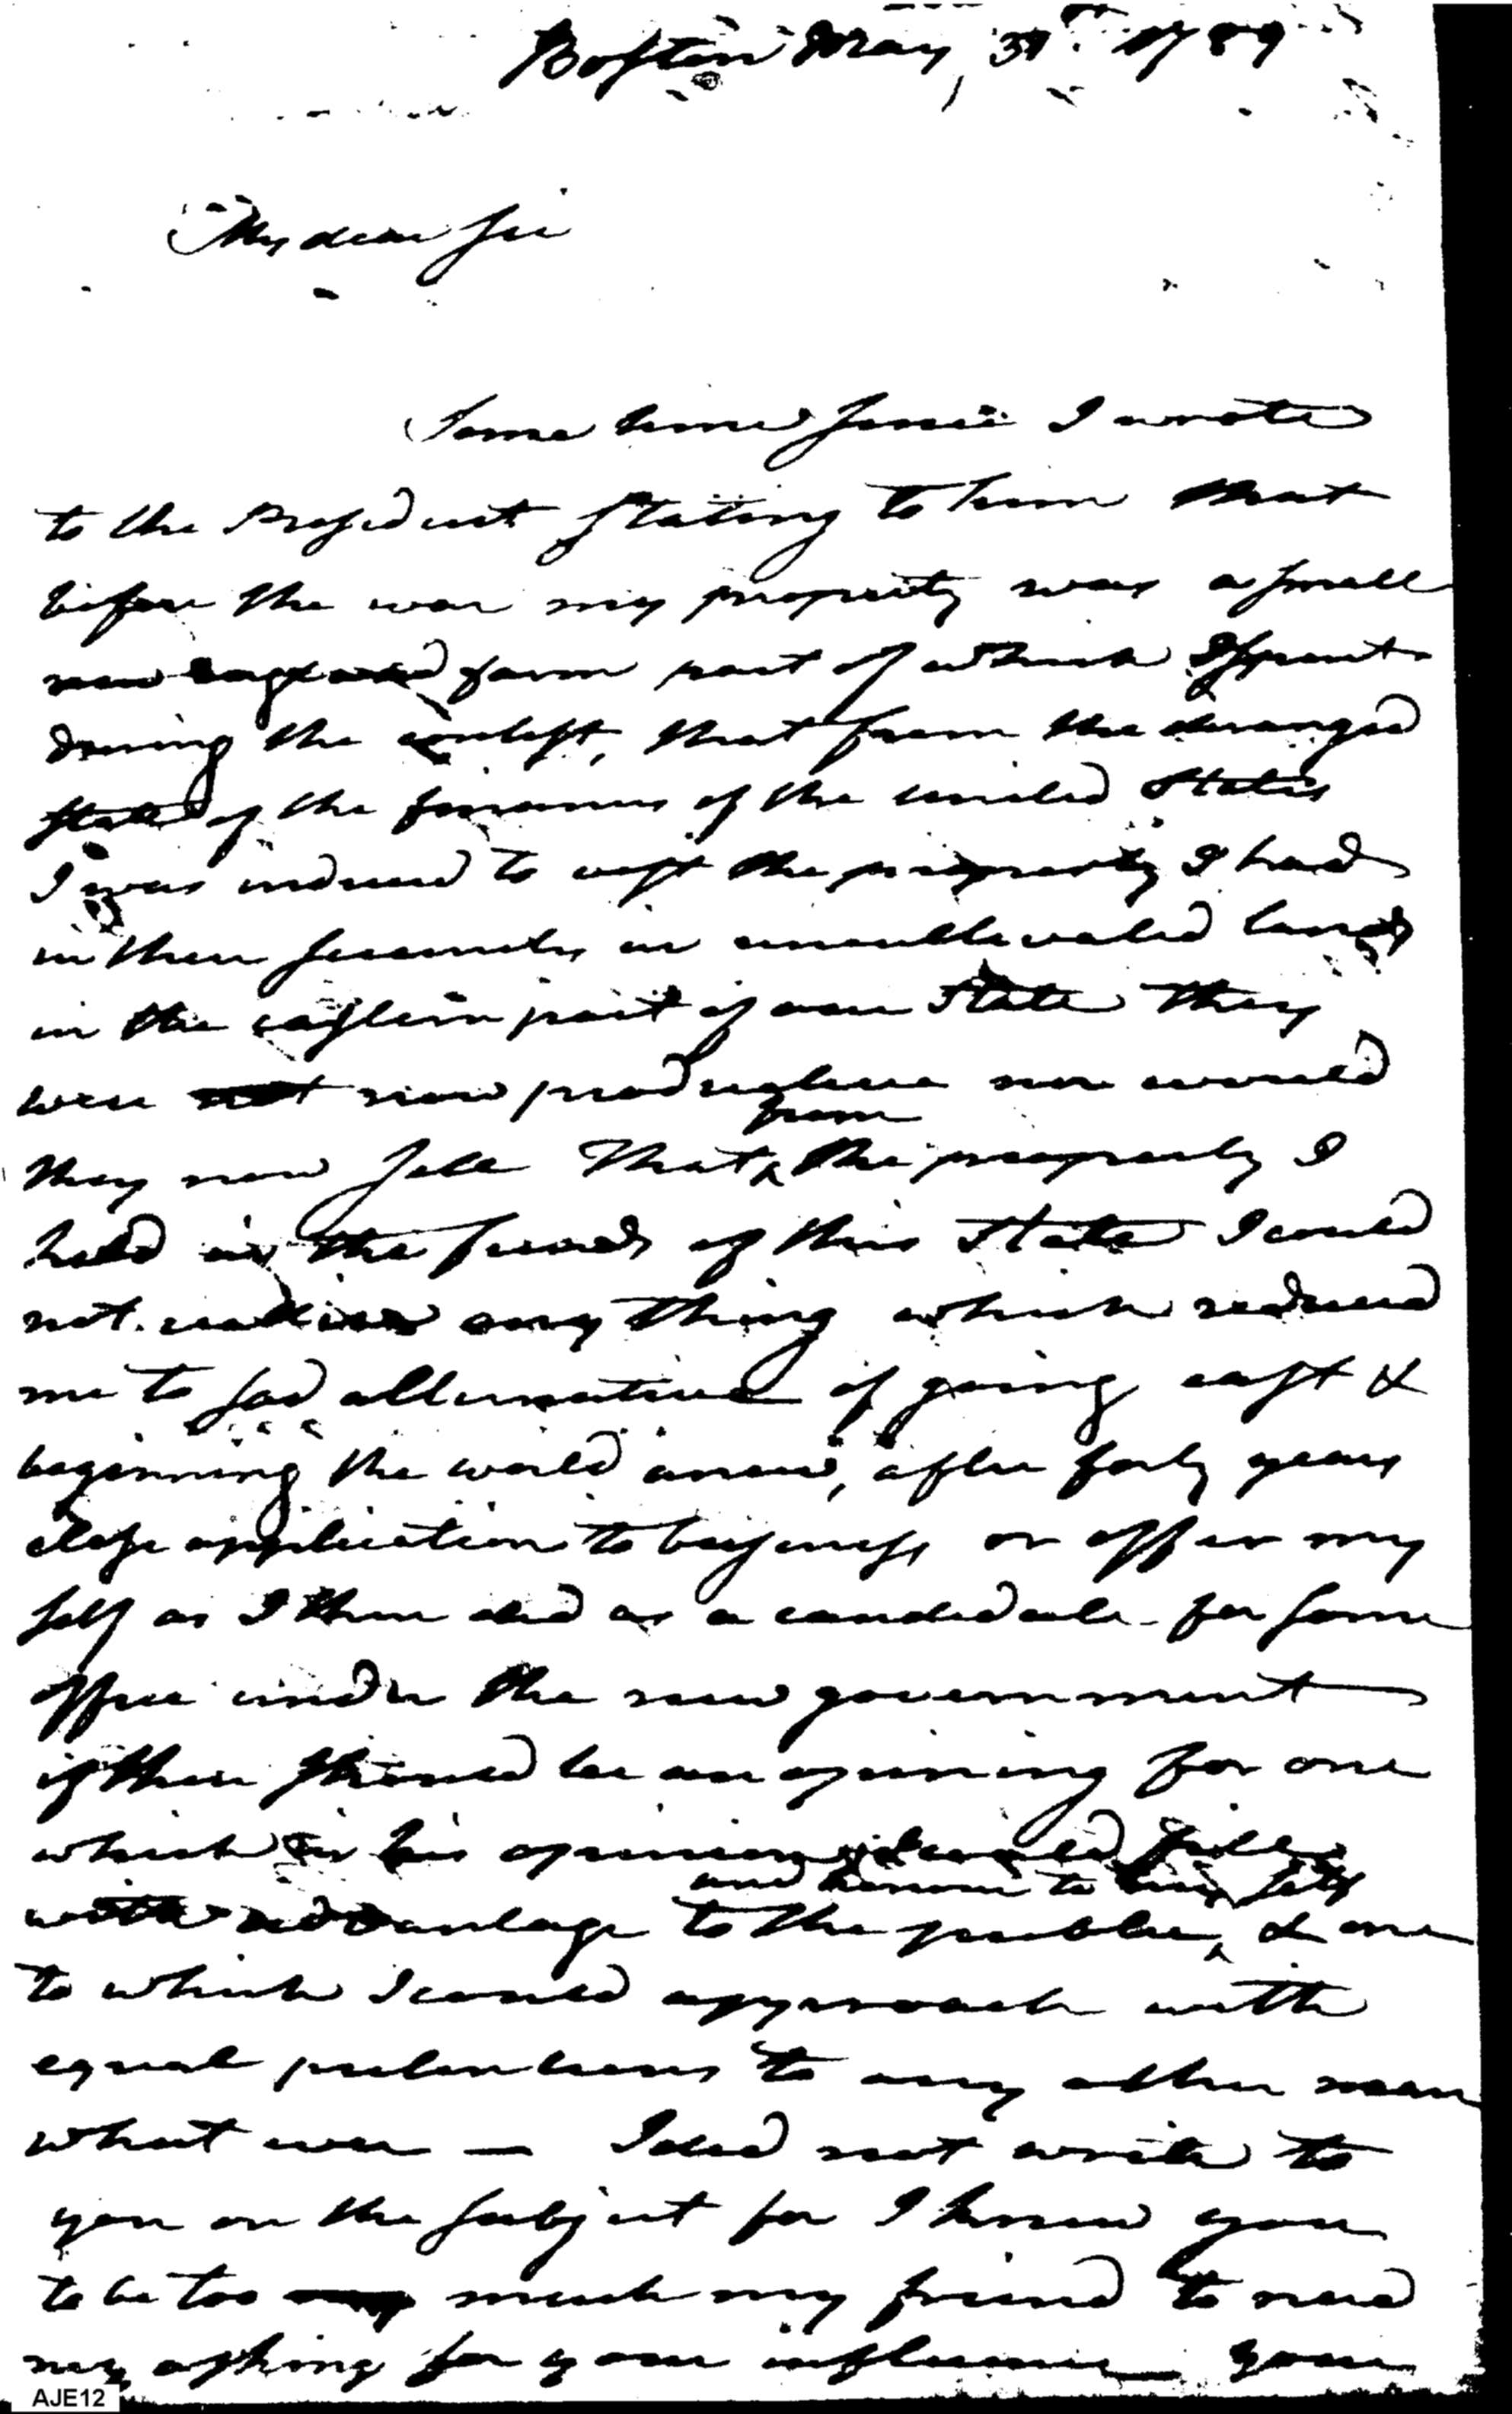 Boston May, 31st 1789
My dear Sir
Some time since I wrote
to the President stating to him that
before the war my property was a small
new England farm part of which I spent
during the contest, that from the deranged
state of the finances of the united States
I was induced to vest the property I had
in their securities in uncultivated lands
in the eastern part of our State they
were now productive nor would
they now sell That from the property I
held in the funds of this State I could
not realise any thing which reduced
me to sad alternative of going east &
beginning the world anew, after forty years
close application to business or offer my
self as I then did as a candidate for some
office under the new government
if there should be an opening for one
which in his opinion I could fill
with advantage to the public, and honour to my self & one
to which I could approach with
equal pretentions to any other man
what ever — I did not write to
you on the subject for I knew you
to be too much my friend to need
my asking for your influence your
AJE12